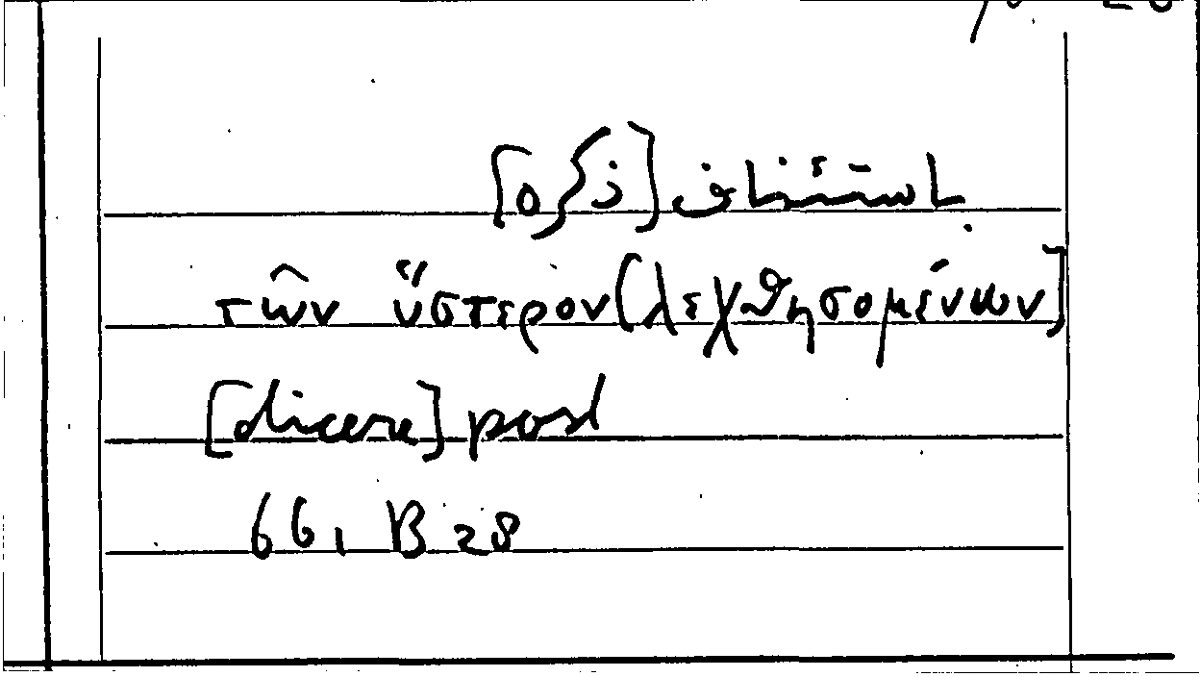 باستئناف [ذكره]
τῶν ὕστερον [λεχθησομένων]
[dicere] post
661 B 28